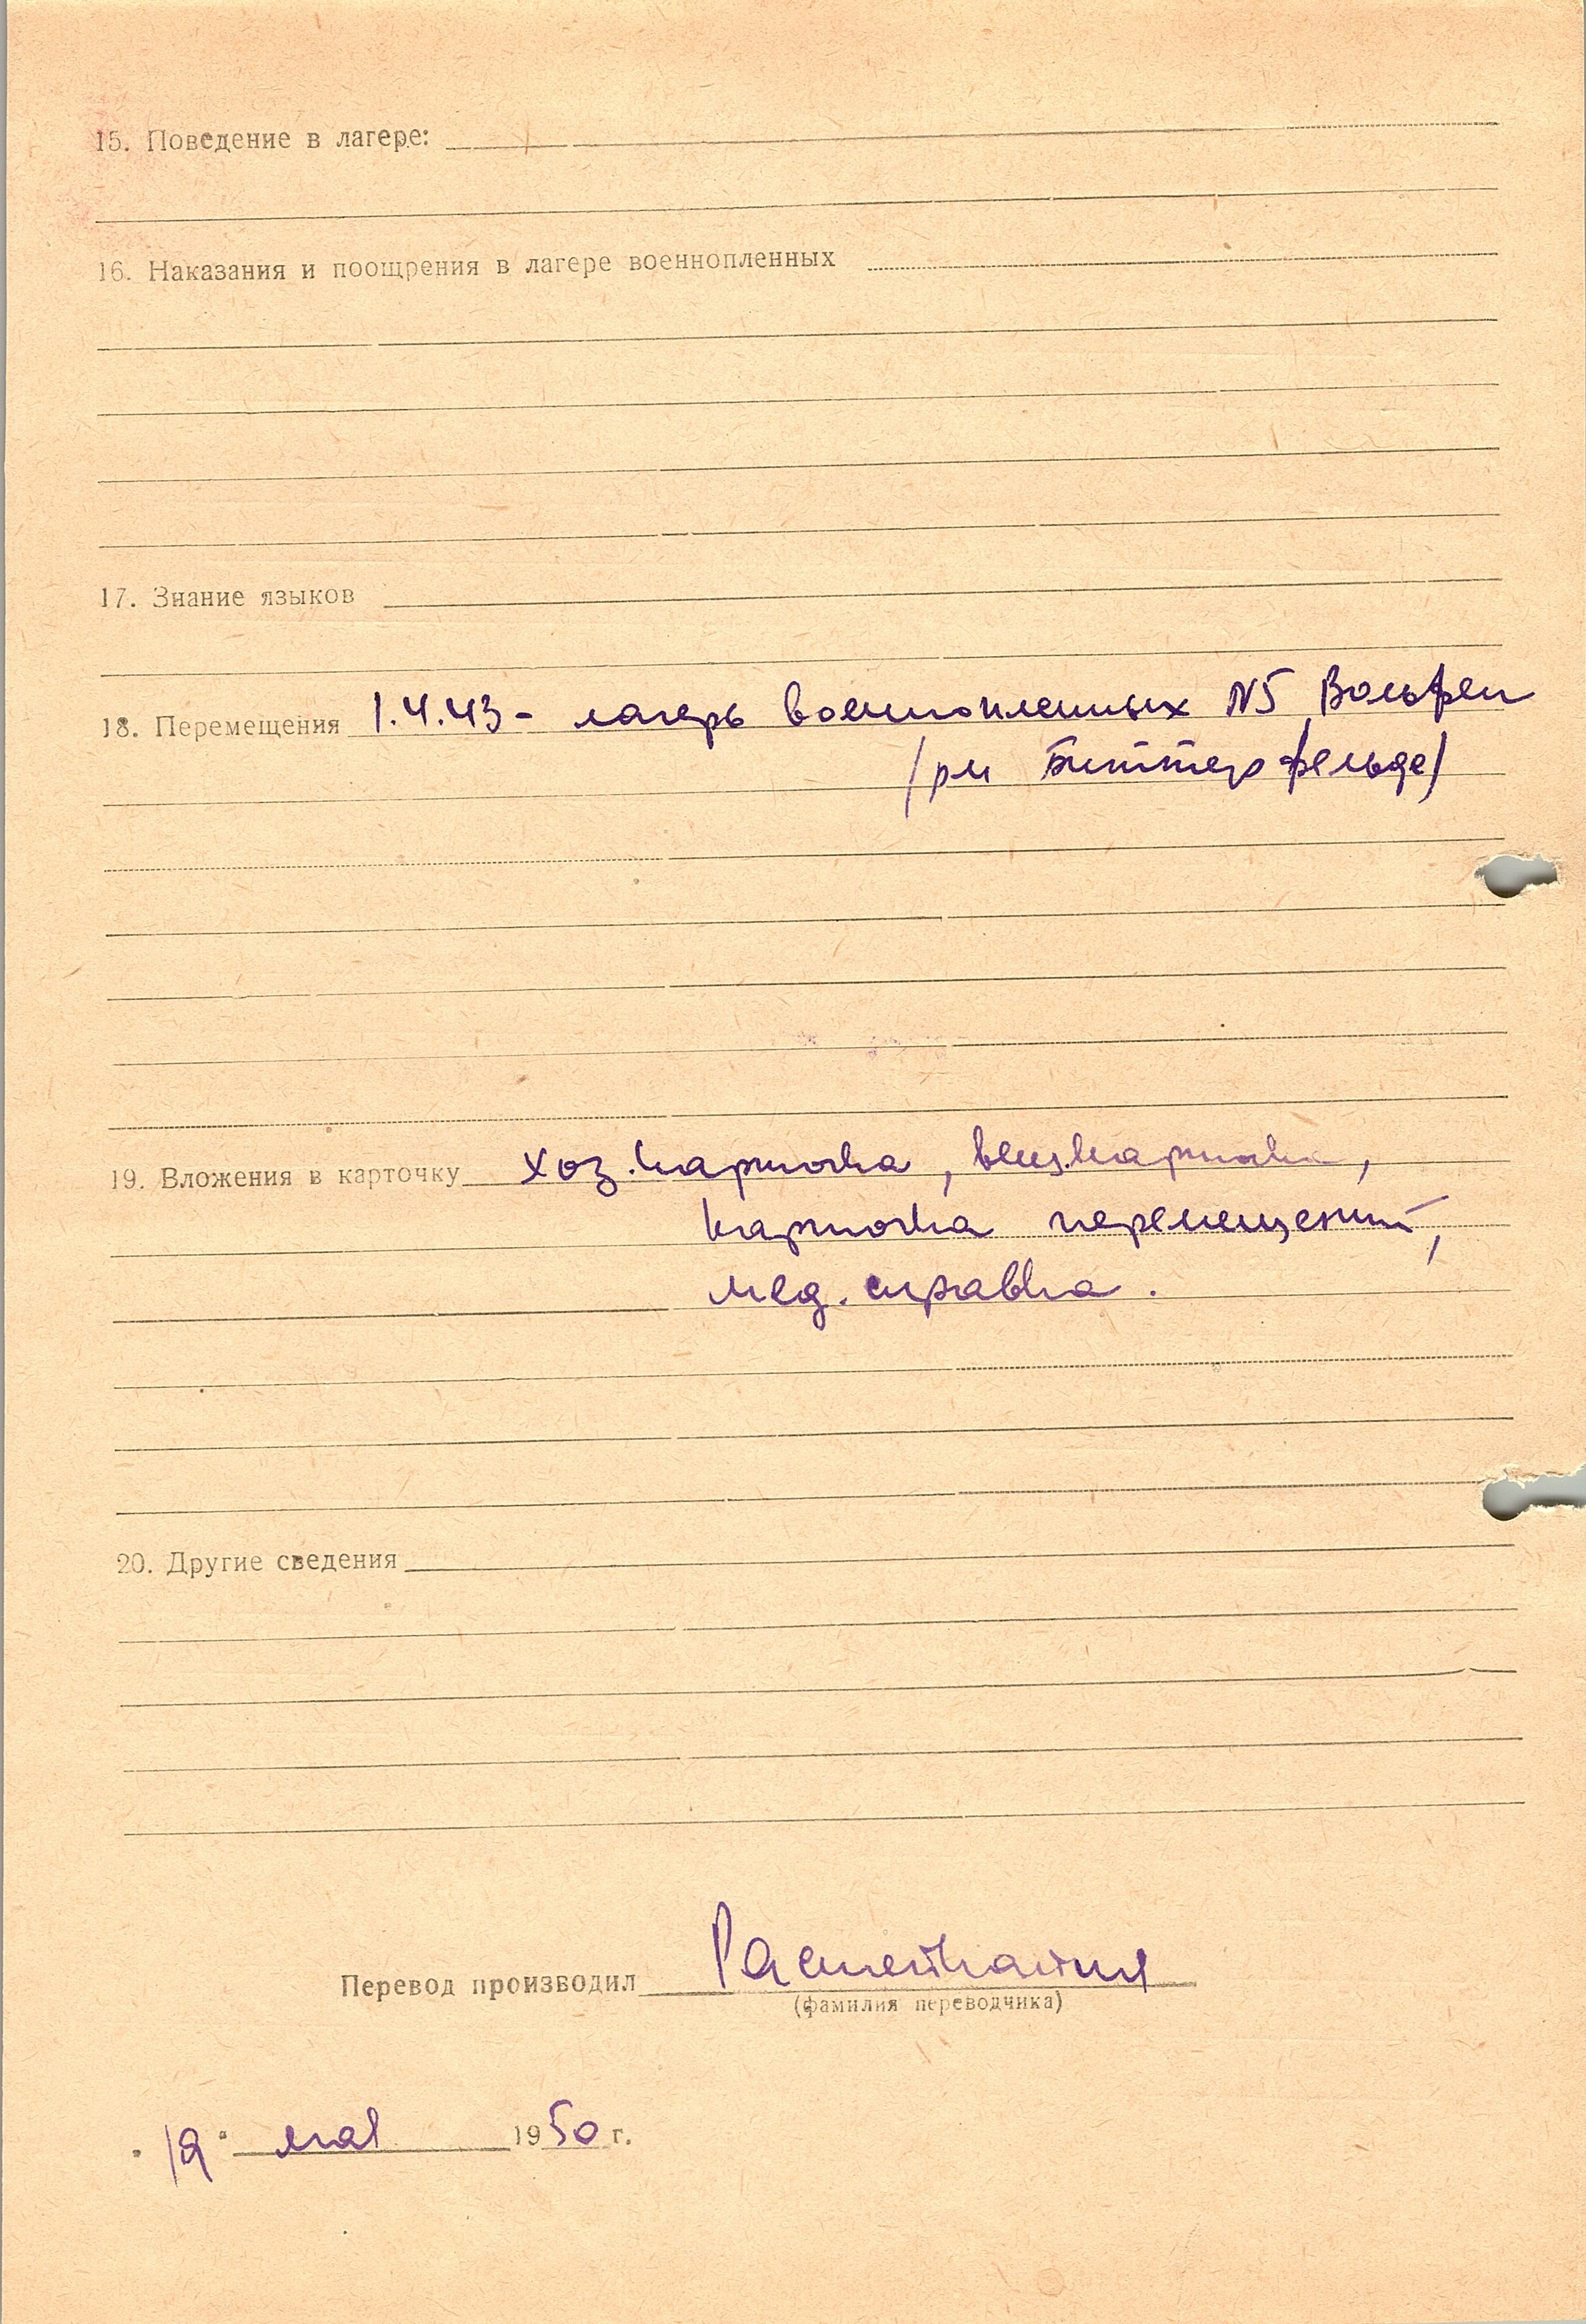 15. Поведение в лагере:
16. Наказания и поощрения в лагере военнопленных
17. Знание языков
18. Перемещения 1.4.43 - лагерь военнопленных N5 Вольфен
/ри Биттерфельде/
19. Вложения в карточку хоз. карточка, вещ. карточка,
карточка перемещений,
мед. справка.
20. Другие сведения
Перевод производил
(фамилия переводчика)
"19" мая 1950 г.